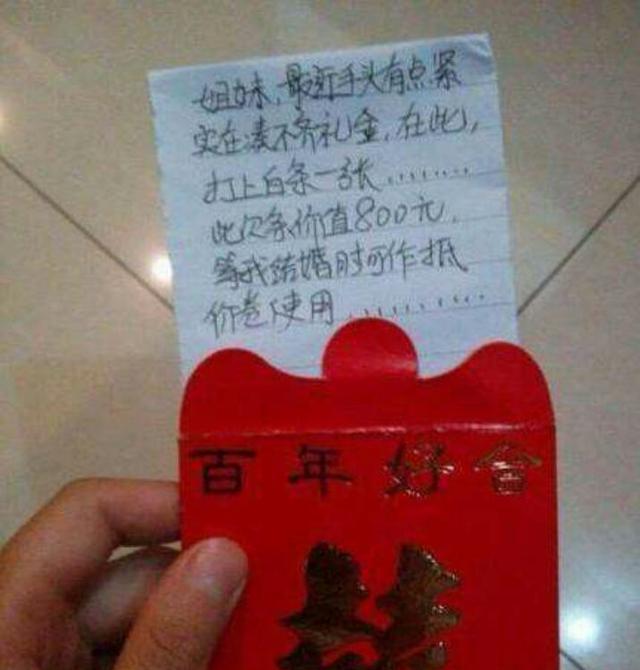 姐妹，最近手头有点紧
实在凑不齐礼金，在此，
打上白条一张........
此欠条价值800元.
等我结婚时可作抵
价卷使用..........
百年好合
囍